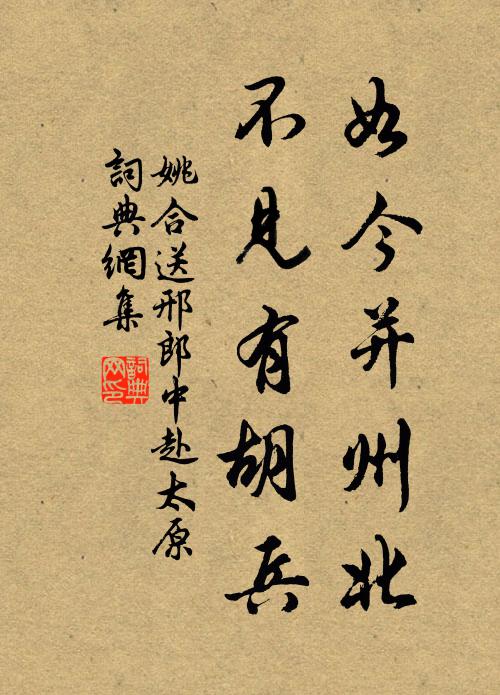 如今并州北
不見有胡兵
姚合送邢郎中赴太原
詞典網集
詞典網印